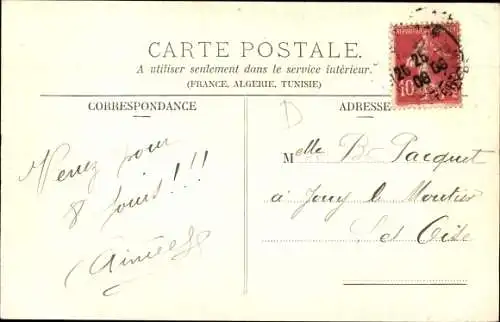 CARTE POSTALE.
A utiliser seulement dans le service intérieur.
(FRANCE, ALGERIE, TUNISIE)
CORRESPONDANCE
ADRESSE
D
Venez pour
8 jours!!!
Aimée
Melle B. Pacquet
à Jouy le Moutier
S et Oise
10
25
08